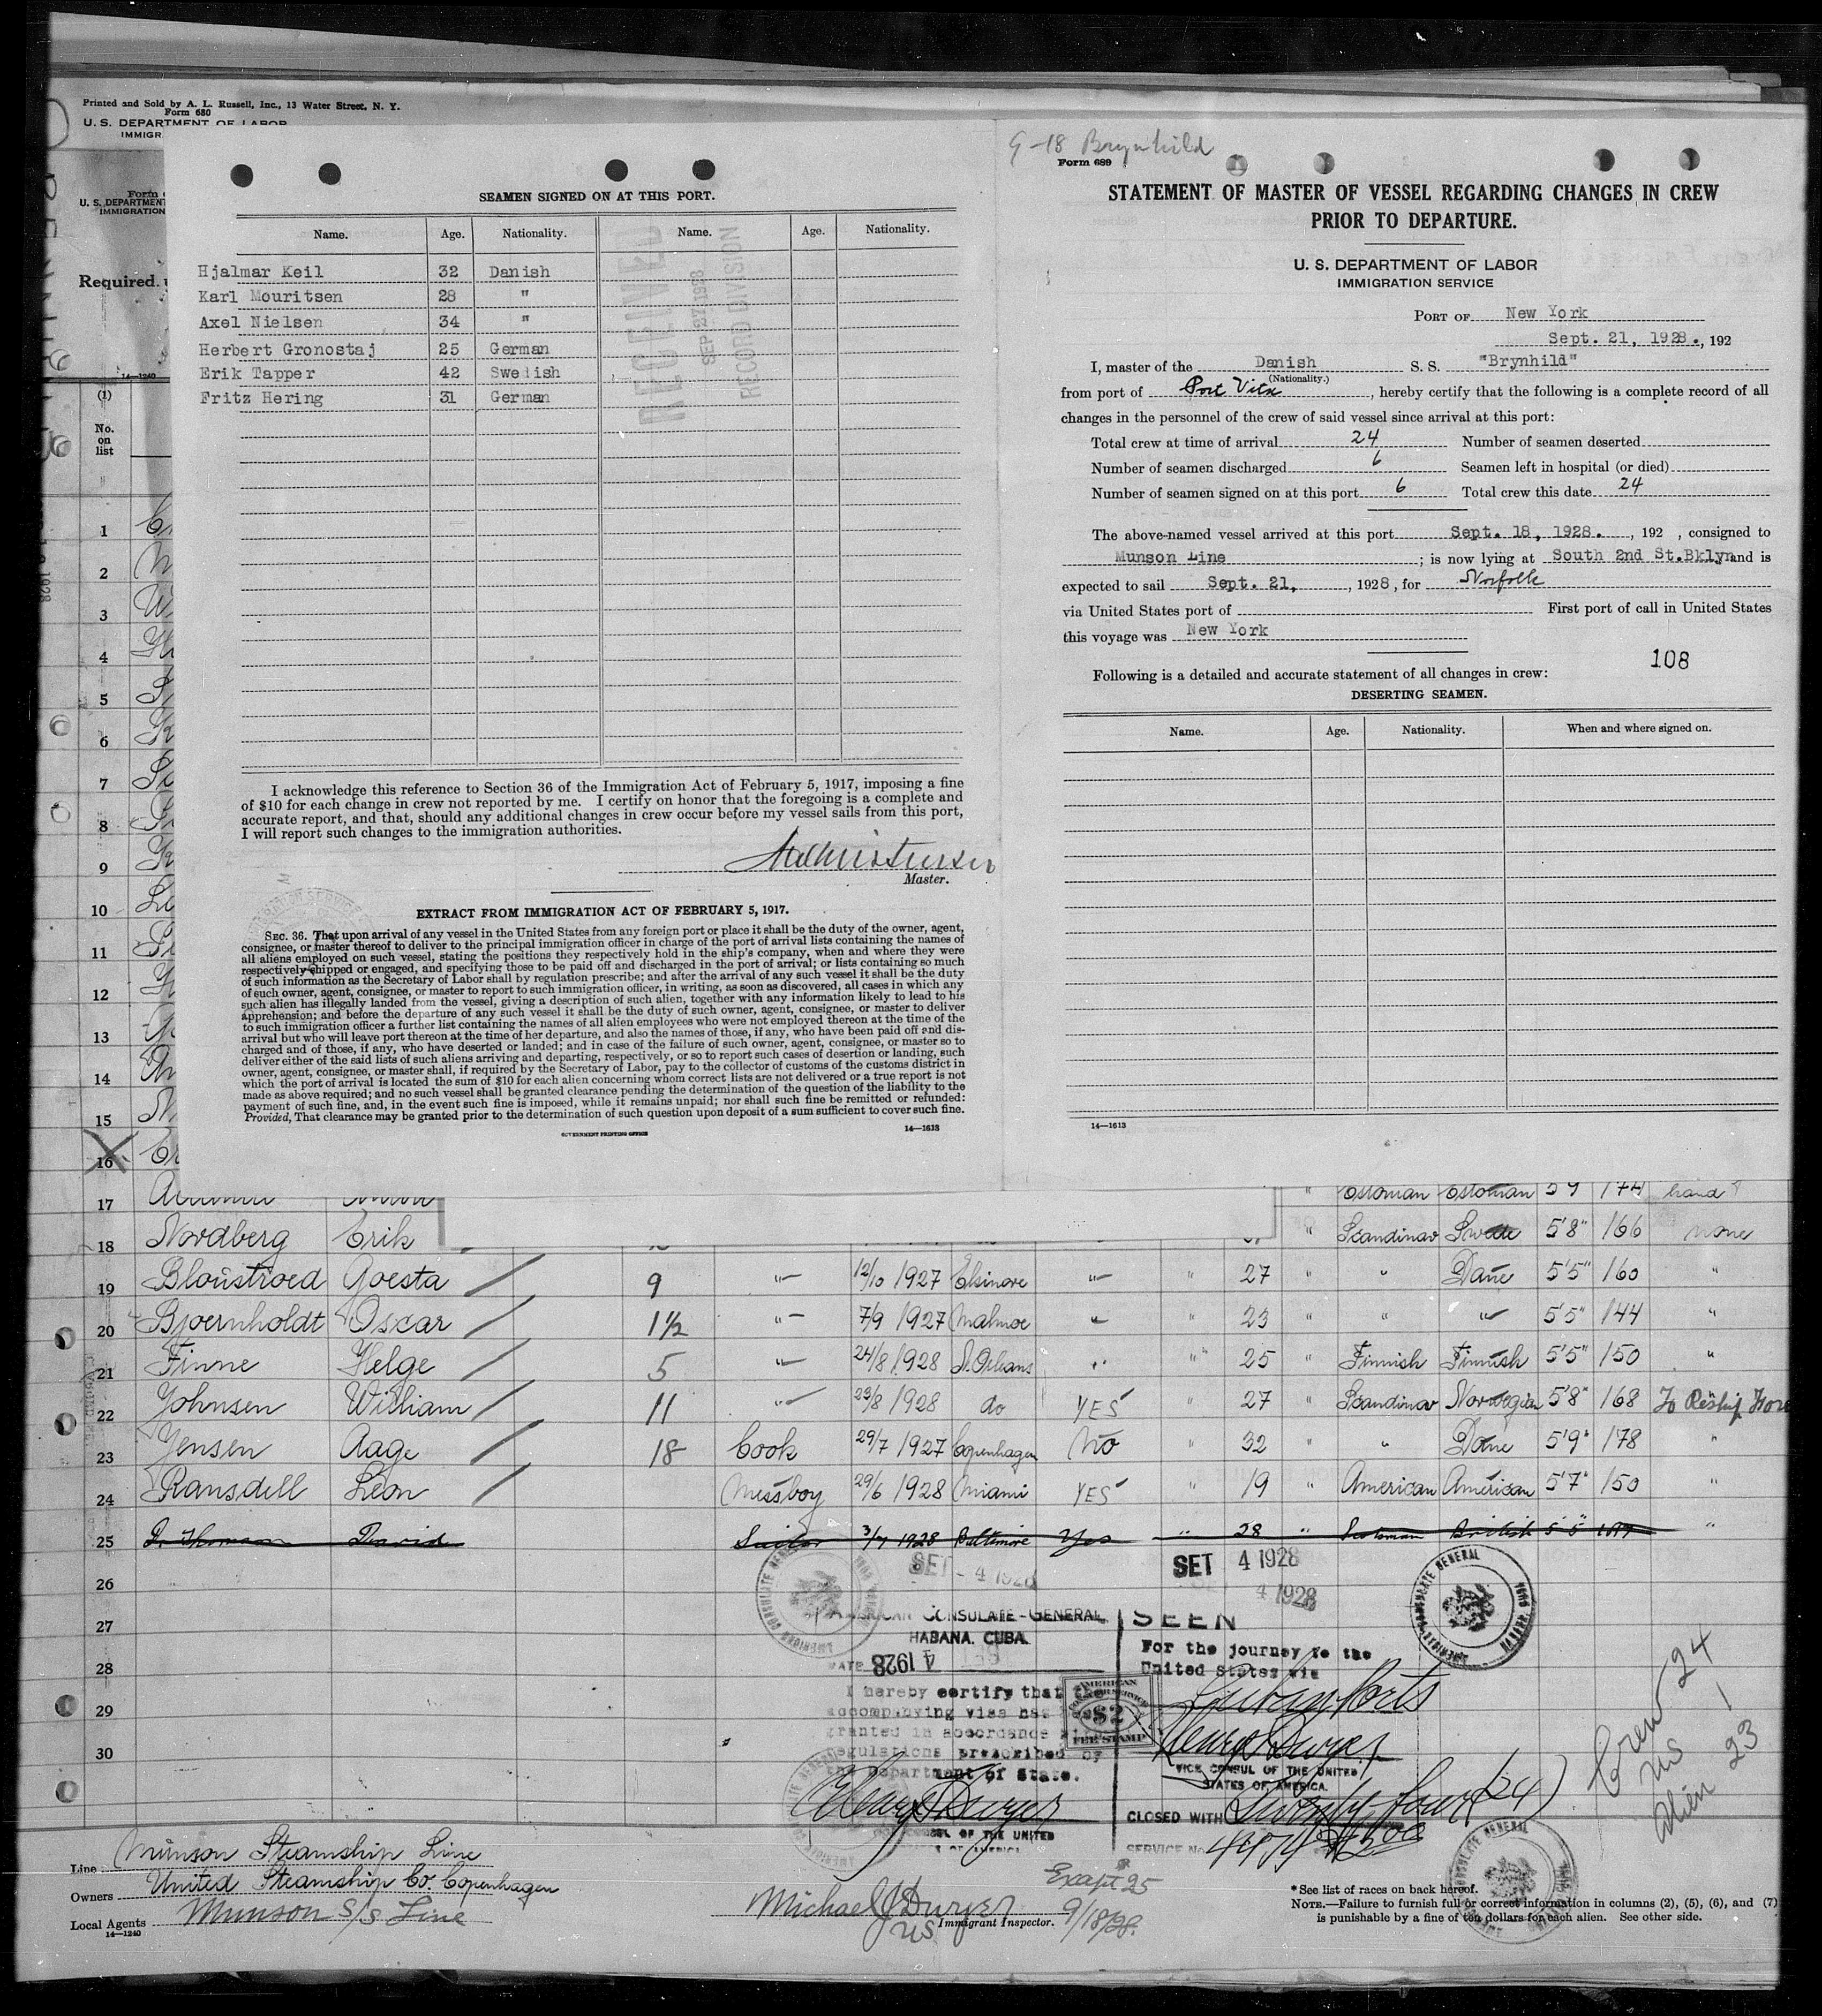 Printed and Sold by A. L. Russell, Inc., 13 Water Street, N. Y.
Form 680
U. S. DEPARTMENT OF LABOR
IMMIGR
Form
U. S. DEPARTMENT
IMMIGRATION
Required
14—1240
(1)
No.
on
list
SEAMEN SIGNED ON AT THIS PORT.
Name. Age. Nationality. Name. Age. Nationality.
Hjalmar Keil 32 Danish
Karl Mouritsen 28 "
Axel Nielsen 34 "
Herbert Gronostaj 25 German
Erik Tapper 42 Swedish
Fritz Hering 31 German
RECEIVED
SEP 27 1928
RECORD DIVISION
I acknowledge this reference to Section 36 of the Immigration Act of February 5, 1917, imposing a fine
of $10 for each change in crew not reported by me. I certify on honor that the foregoing is a complete and
accurate report, and that, should any additional changes in crew occur before my vessel sails from this port,
I will report such changes to the immigration authorities.
Master.
EXTRACT FROM IMMIGRATION ACT OF FEBRUARY 5, 1917.
SEC. 36. That upon arrival of any vessel in the United States from any foreign port or place it shall be the duty of the owner, agent,
consignee, or master thereof to deliver to the principal immigration officer in charge of the port of arrival lists containing the names of
all aliens employed on such vessel, stating the positions they respectively hold in the ship's company, when and where they were
respectively shipped or engaged, and specifying those to be paid off and discharged in the port of arrival; or lists containing so much
of such information as the Secretary of Labor shall by regulation prescribe; and after the arrival of any such vessel it shall be the duty
of such owner, agent, consignee, or master to report to such immigration officer, in writing, as soon as discovered, all cases in which any
such alien has illegally landed from the vessel, giving a description of such alien, together with any information likely to lead to his
apprehension; and before the departure of any such vessel it shall be the duty of such owner, agent, consignee, or master to deliver
to such immigration officer a further list containing the names of all alien employees who were not employed thereon at the time of the
arrival but who will leave port thereon at the time of her departure, and also the names of those, if any, who have been paid off and dis-
charged and of those, if any, who have deserted or landed; and in case of the failure of such owner, agent, consignee, or master so to
deliver either of the said lists of such aliens arriving and departing, respectively, or so to report such cases of desertion or landing, such
owner, agent, consignee, or master shall, if required by the Secretary of Labor, pay to the collector of customs of the customs district in
which the port of arrival is located the sum of $10 for each alien concerning whom correct lists are not delivered or a true report is not
made as above required; and no such vessel shall be granted clearance pending the determination of the question of the liability to the
payment of such fine, and, in the event such fine is imposed, while it remains unpaid; nor shall such fine be remitted or refunded:
Provided, That clearance may be granted prior to the determination of such question upon deposit of a sum sufficient to cover such fine.
GOVERNMENT PRINTING OFFICE 14—1613
9-18 Brynhild
Form 689
STATEMENT OF MASTER OF VESSEL REGARDING CHANGES IN CREW
PRIOR TO DEPARTURE.
U. S. DEPARTMENT OF LABOR
IMMIGRATION SERVICE
PORT OF New York
Sept. 21, 1928., 192
I, master of the Danish S. S. "Brynhild"
(Nationality.)
from port of Port Vita, hereby certify that the following is a complete record of all
changes in the personnel of the crew of said vessel since arrival at this port:
Total crew at time of arrival 24 Number of seamen deserted
Number of seamen discharged 6 Seamen left in hospital (or died)
Number of seamen signed on at this port 6 Total crew this date 24
The above-named vessel arrived at this port Sept. 18, 1928. , 192 , consigned to
Munson Line ; is now lying at South 2nd St.Bklyn and is
expected to sail Sept. 21, , 1928, for Norfolk
via United States port of First port of call in United States
this voyage was New York
108
Following is a detailed and accurate statement of all changes in crew:
DESERTING SEAMEN.
Name. Age. Nationality. When and where signed on.
14—1613
1
2
3
4
5
6
7
8
9
10
11
12
13
14
15
16
17 " Estonian Estonian 5'9 174 hand
18 Nordberg Erik " Scandinav Swede 5'8" 166 none
19 Bloustroed Goesta 9 "- 12/10 1927 Elsinore "- " 27 " " Dane 5'5" 160 "
20 Bjoernholdt Oscar 1½ "- 7/9 1927 Malmoe " " 23 " " " 5'5" 144 "
21 Finne Helge 5 "- 24/8 1928 N.Orleans " " 25 " Finnish Finnish 5'5" 150 "
22 Johnsen William 11 "- 23/8 1928 do YES " 27 " Scandinav Norwegian 5'8" 168 To Reship For
23 Jensen Aage 18 Cook 29/7 1927 Copenhagen No " 32 " " Dane 5'9" 178 "
24 Ransdell Leon Messboy 29/6 1928 Miami YES " 19 " American American 5'7" 150 "
25 David Sailor 3/7 1928 Baltimore Yes " 28 " Scotsman British 5'5" "
26
27
28
29
30
SET - 4 1928
SET 4 1928
4 1928
AMERICAN CONSULATE-GENERAL
HABANA. CUBA.
DATE 4 1928
I hereby certify that the
accompanying visa has been
granted in accordance with
regulations prescribed by
the Department of State.
Henry T Dwyer
SUL OF THE UNITED
S OF AMERICA
AMERICAN
CONSULAR SERVICE
$2
FEE STAMP
SEEN
For the journey to the
United States via
Cuban Ports
Henry T Dwyer
VICE CONSUL OF THE UNITED
STATES OF AMERICA.
CLOSED WITH Twenty-four (24)
SERVICE No.
AMERICAN CONSULATE GENERAL
Crew 24
US 1
Alien 23
Line Munson Steamship Line
Owners United Steamship Co. Copenhagen
Local Agents Munson S/S Line
14—1240
Michael J Dwyer
US Immigrant Inspector.
Except 25
9/18/28.
*See list of races on back hereof.
NOTE.—Failure to furnish full or correct information in columns (2), (5), (6), and (7)
is punishable by a fine of ten dollars for each alien. See other side.